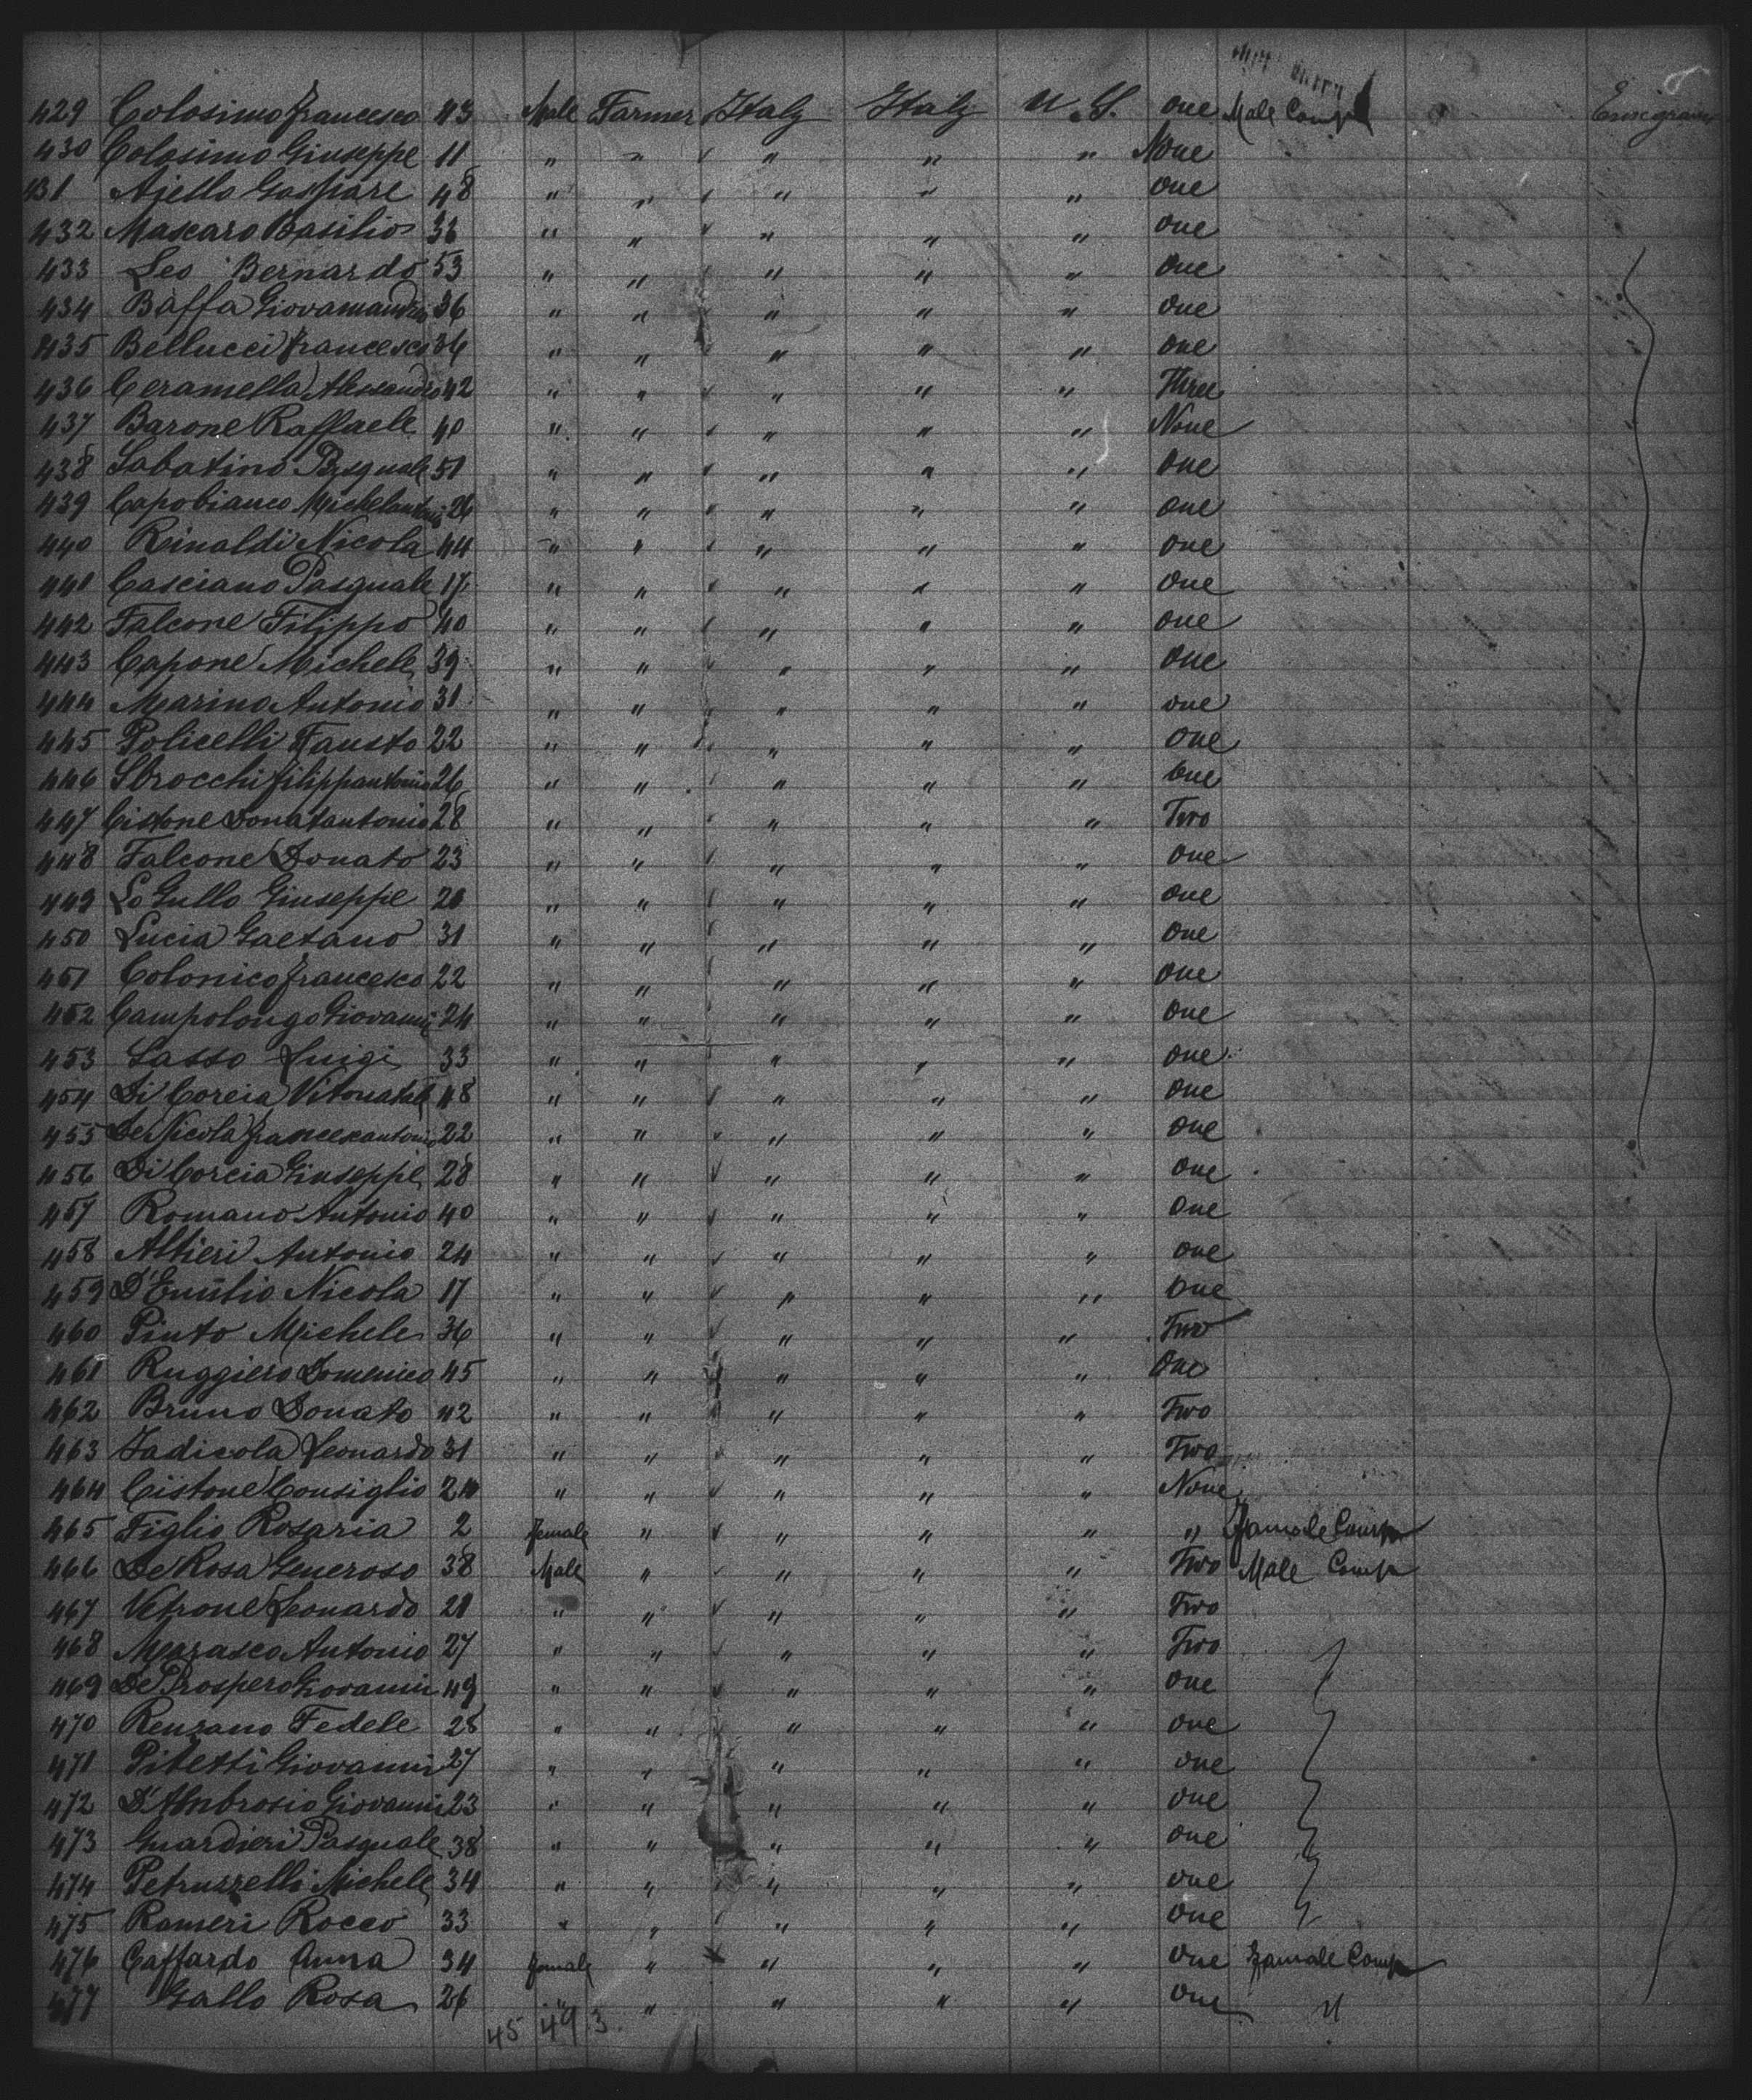 429 Colosimo Francesco 43 Male Farmer Italy Italy U.S. one Male Comp Emigrant
430 Colosimo Giuseppe 11 " " " " " None
431 Ajello Gaspare 48 " " " " " one
432 Mascaro Basilio 33 " " " " " one
433 Leo Bernardo 53 " " " " " one
434 Baffa 36 " " " " " one
435 Bellucci Francesco 36 " " " " " one
436 Ceramella Alessandro 42 " " " " " Three
437 Barone Raffaele 40 " " " " " None
438 Sabatino Pasquale 51 " " " " " one
439 Capobianco Michelantonio 26 " " " " " one
440 Rinaldi Nicola 44 " " " " " one
441 Casciano Pasquale 17 " " " " " one
442 Falcone Filippo 40 " " " " " one
443 Capone Michele 39 " " " " " one
444 Marino Antonio 31 " " " " " one
445 Policelli Fausto 22 " " " " " one
446 Sbrocchi Filippantonio 26 " " " " " one
447 Cistone Donatantonio 28 " " " " " Two
448 Falcone Donato 23 " " " " " one
449 Lo Gullo Giuseppe 20 " " " " " one
450 Lucia Gaetano 31 " " " " " one
451 Colonico Francesco 22 " " " " " one
452 Campolongo Giovanni 24 " " " " " one
453 Sasso Luigi 33 " " " " " one
454 Di Corcia 48 " " " " " one
455 De Nicola Francescantonio 22 " " " " " one
456 Di Corcia Giuseppe 28 " " " " " one
457 Romano Antonio 40 " " " " " one
458 Altieri Antonio 24 " " " " " one
459 D'Emilio Nicola 17 " " " " " one
460 Pinto Michele 36 " " " " " Two
461 Ruggiero Domenico 45 " " " " " One
462 Bruno Donato 42 " " " " " Two
463 Iadicola Leonardo 31 " " " " " Two
464 Cistone Consiglio 24 " " " " " None
465 Figlio Rosaria 2 Female " " " " " Famale Comp
466 De Rosa Generoso 38 Male " " " " Two Male Comp
467 Vetrone Leonardo 21 " " " " " Two
468 Marasco Antonio 27 " " " " " Two
469 De Prospero Giovanni 49 " " " " " one
470 Renzano Fedele 28 " " " " " one
471 Pitetti Giovanni 27 " " " " " one
472 D'Ambrosio Giovanni 23 " " " " " one
473 Guardieri Pasquale 38 " " " " " one
474 Petruzzelli Michele 34 " " " " " one
475 Rameri Rocco 33 " " " " " one
476 Gaffardo Anna 34 Female " " " " one Famale Comp
477 Gallo Rosa 26 " " " " " one "
45 49 3